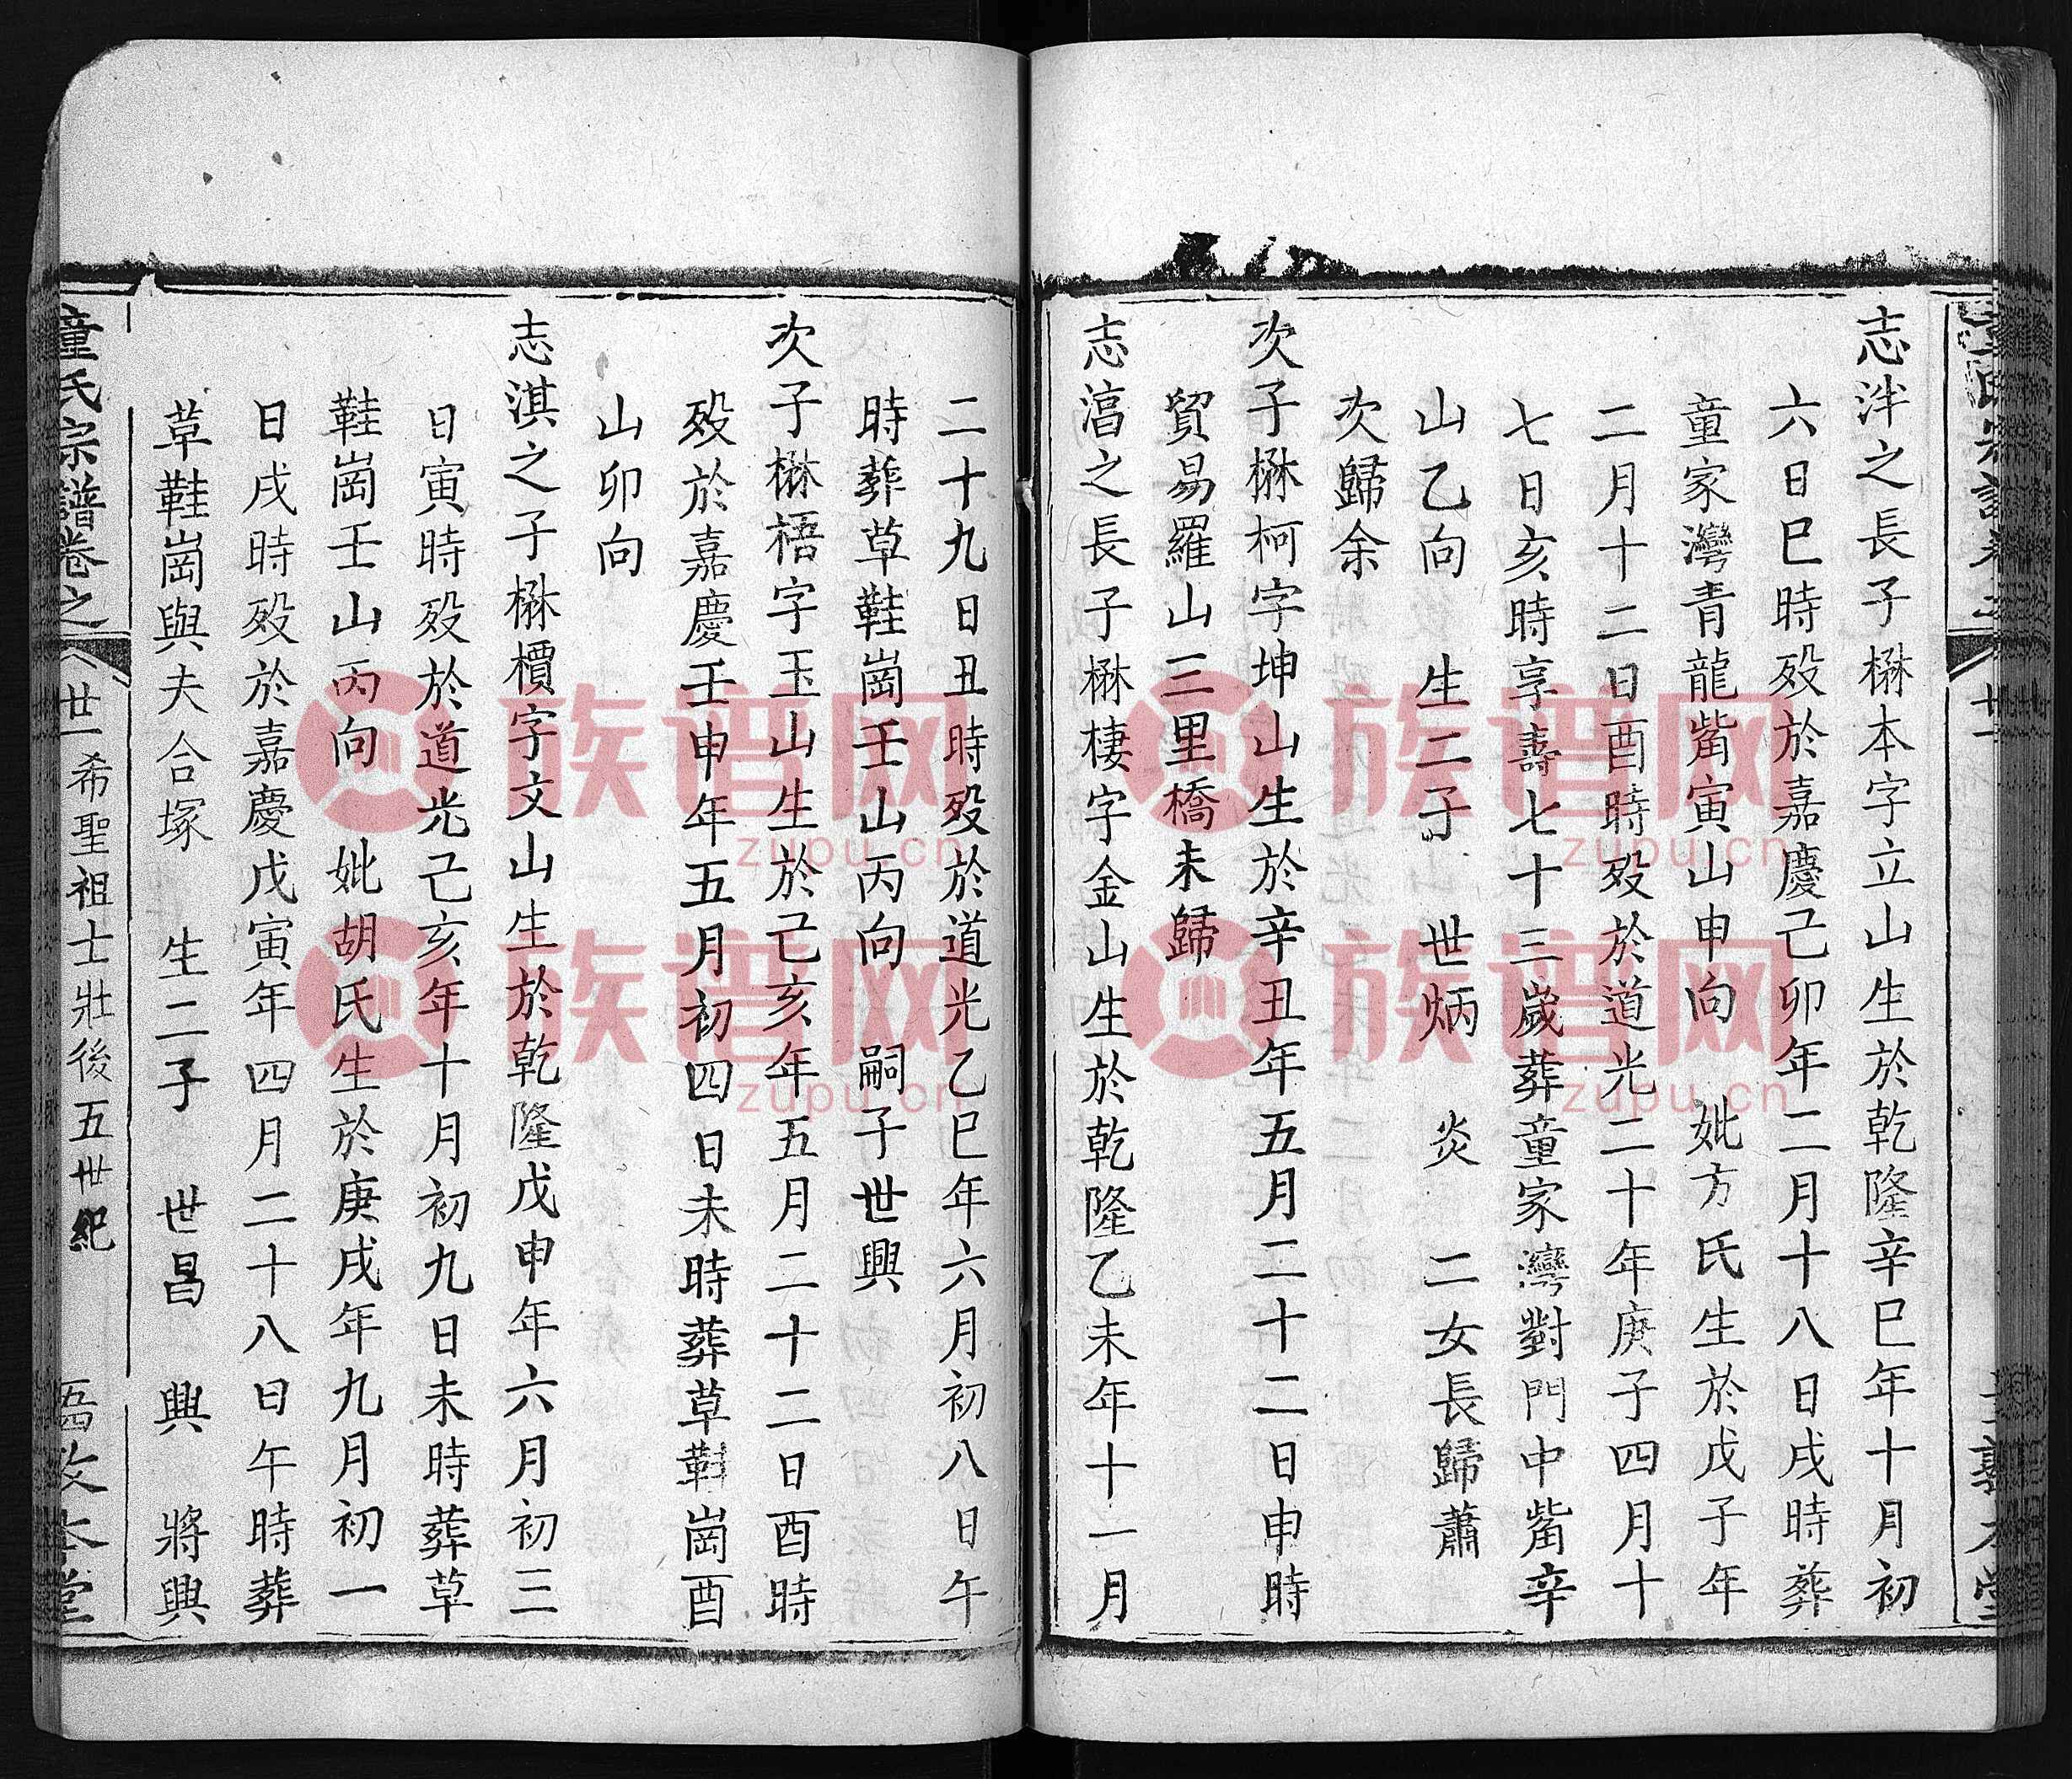 志泮之長子楙本字立山生於乾隆辛巳年十月初
六日巳時歿於嘉慶己卯年二月十八日戌時葬
童家灣青龍嘴寅山申向 妣方氏生於戊子年
二月十二日酉時歿於道光二十年庚子四月十
七日亥時享壽七十三歲葬童家灣對門中嘴辛
山乙向 生二子 世炳 炎 二女長歸蕭
次歸余
次子楙柯字坤山生於辛丑年五月二十二日申時
貿易羅山三里橋未歸
志湻之長子楙棲字金山生於乾隆乙未年十一月
二十九日丑時歿於道光乙巳年六月初八日午
時葬草鞋崗壬山丙向 嗣子世興
次子楙梧字玉山生於己亥年五月二十二日酉時
歿於嘉慶壬申年五月初四日未時葬草鞋崗酉
山卯向
志淇之子楙檟字文山生於乾隆戊申年六月初三
日寅時歿於道光己亥年十月初九日未時葬草
鞋崗壬山丙向 妣胡氏生於庚戌年九月初一
日戌時歿於嘉慶戊寅年四月二十八日午時葬
草鞋崗與夫合塚 生二子 世昌 興 將興
童氏宗譜卷之八 廿一 希聖祖士壯後五世紀 敦本堂
族谱网
zupu.cn
族谱网
zupu.cn
族谱网
zupu.cn
族谱网
zupu.cn